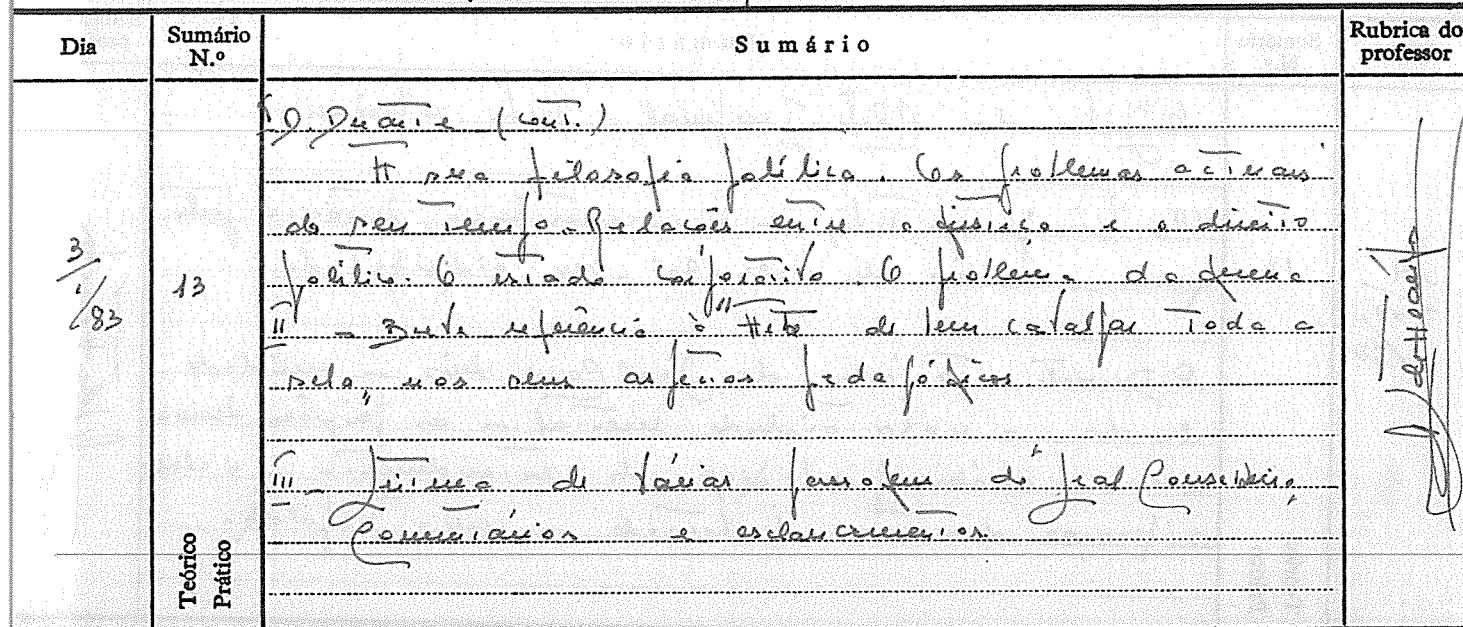 Dia
Sumário N.º
Sumário
Rubrica do professor
3/1/83
13
Teórico
Prático
I D. Duarte (Cont.)
A sua filosofia política. Os problemas actuais
do seu tempo. Relações entre a justiça e o direito
político. O estado corporativo. O problema da guerra
II - Breve referência à "Arte de bem cavalgar toda a
sela", nos seus aspectos pedagógicos.
III - Leitura de várias passagens do Leal Conselheiro,
Comentários e esclarecimentos.